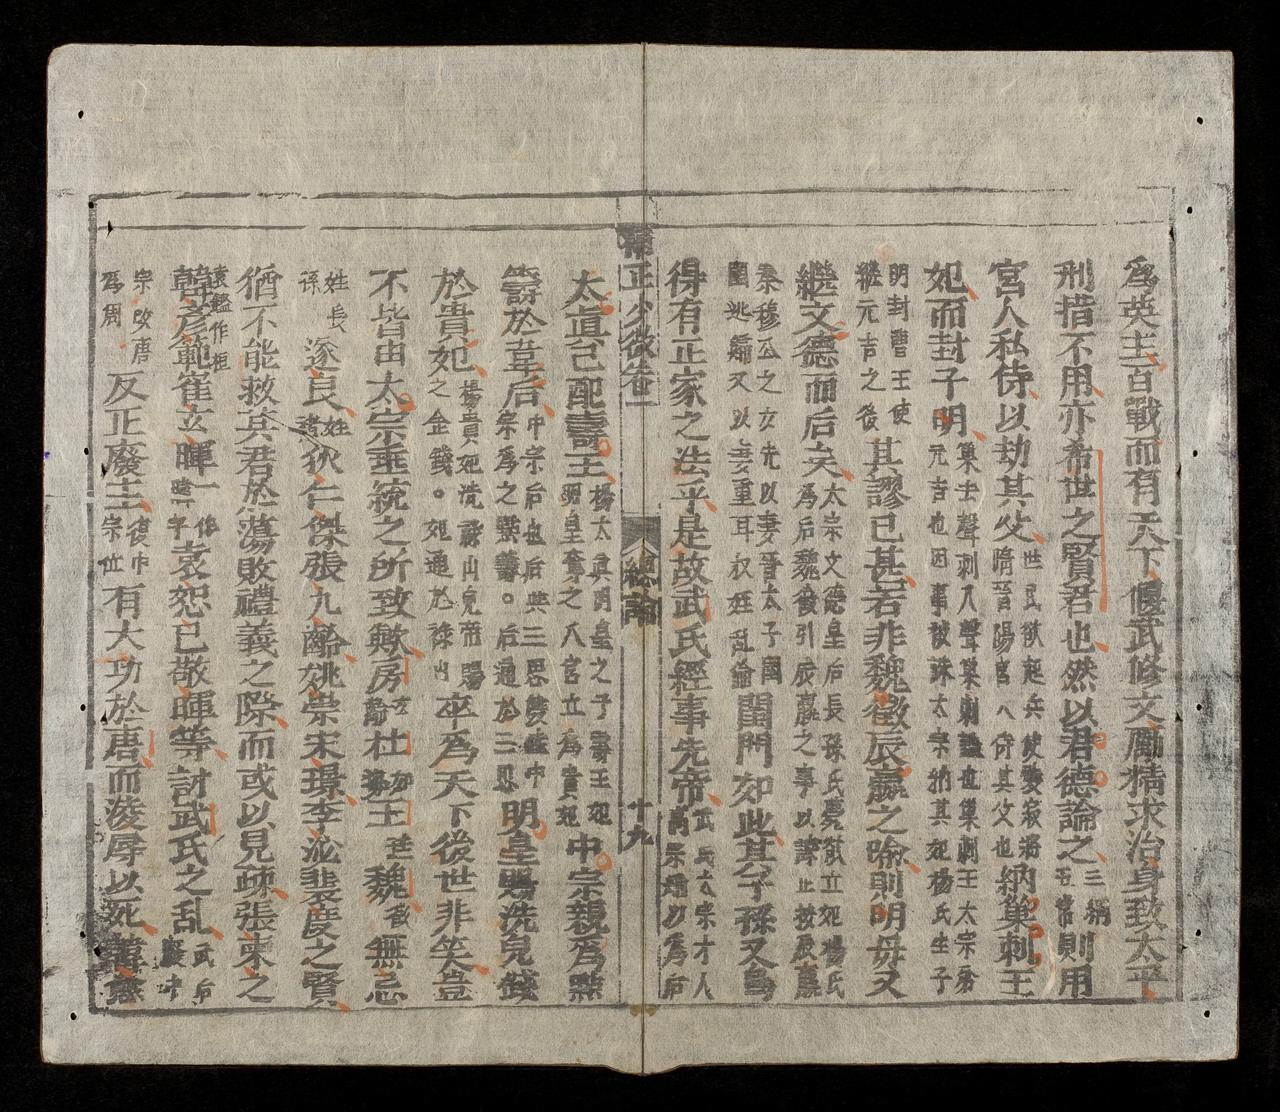 為英主百戰而有天下偃武修文勵精求治身致太平
刑措不用亦希世之賢君也然以君德論之三綱五常則用
宮人私侍以劫其父世民欲起兵使裴寂將隋晉陽宮人侍其父也納巢刺王
妃而封子明巢士聲刺八聲巢刺諡也巢刺王太宗弟元吉也因事被誅太宗納其妃楊氏生子
明封曹王使繼元吉之後其謬已甚若非魏徵辰嬴之喻則明母又
繼文德而后矣太宗文德皇后長孫氏薨欲立妃楊氏爲后魏徵引辰嬴之事以諫止按辰嬴
秦穆公之女先以妻晉太子圉圉逃歸又以妻重耳故姪乱論閨門如此其子孫又烏
得有正家之法乎是故武氏經事先帝武氏太宗才人高宗增以爲后
補正少微卷一
總論
十九
太眞已配壽王楊太眞明皇之子壽王妃明皇奪之入宮立為貴妃中宗親爲點
籌於韋后中宗后也后與三思雙陸中宗爲之點籌。后通於三思明皇賜洗兒錢
於貴妃楊貴妃洗祿山兒帝賜之金錢。妃通於祿山卒爲天下後世非笑豈
不皆由太宗垂統之所致歟房玄齡杜如晦王珪魏徵無忌
姓長孫遂良姓褚狄仁傑張九齡姚崇宋璟李泌裴度之賢
猶不能救其君於蕩敗禮義之際而或以見疎張柬之
袁鑑作桓韓彦範崔立暉一作暐字袁恕已敬暉等討武氏之乱武后廢中
宗改唐爲周反正廢主復中宗位有大功於唐而凌辱以死韓無